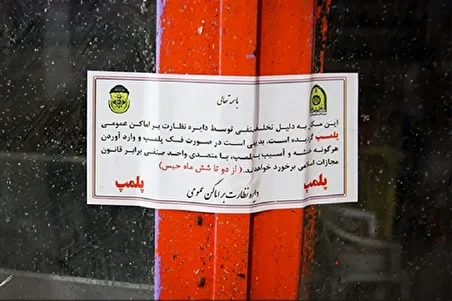 باسمه تعالی
این مکان به دلیل تخلف صنفی توسط دایره نظارت بر اماکن عمومی
پلمپ گردیده است. بدیهی است در صورت فک پلمپ و وارد آوردن
هرگونه خدشه و آسیب به پلمپ، با متصدی واحد صنفی برابر قانون
مجازات اسلامی برخورد خواهد شد. (از دو تا شش ماه حبس)
پلمپ
دایره نظارت بر اماکن عمومی
پلمپ